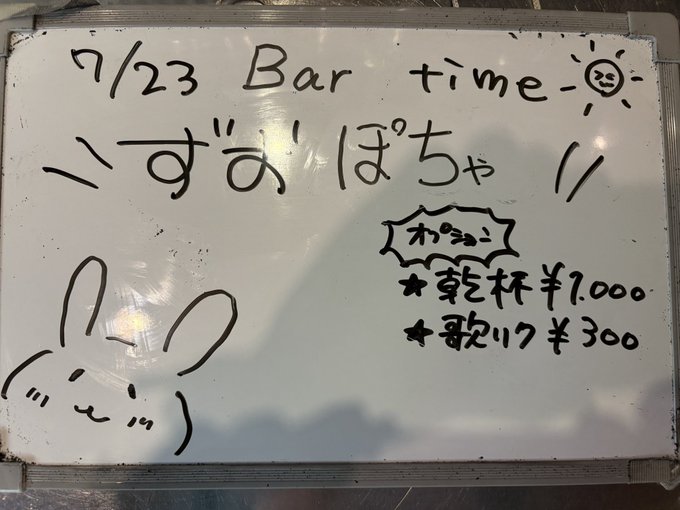 7/23 Bar time
ずお ぽちゃ
オプション
★乾杯 ¥1.000
★歌リク ¥300